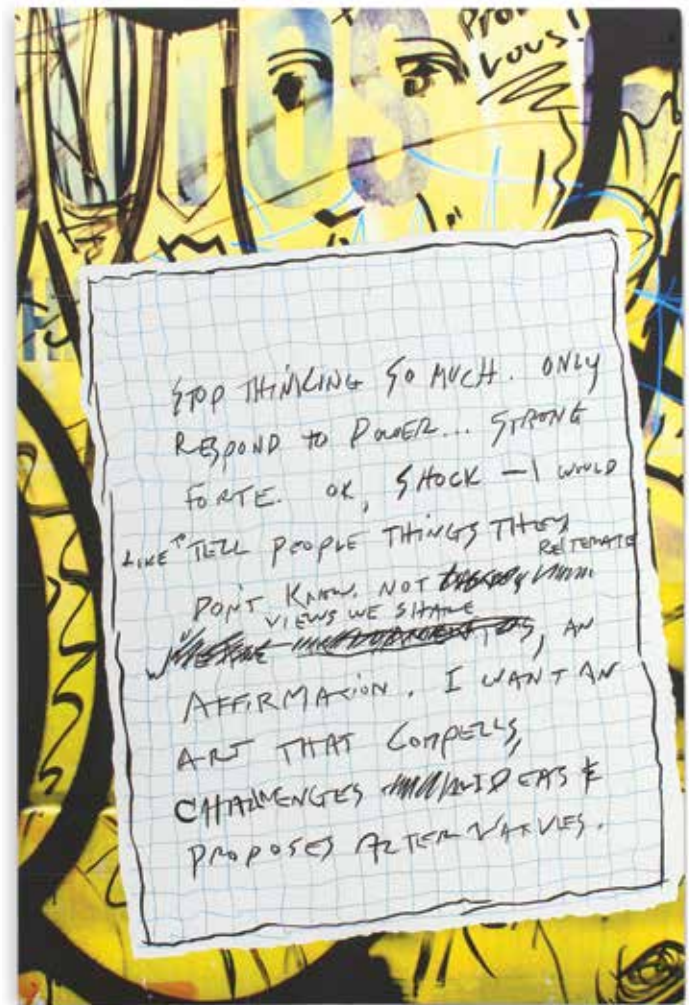 UIOS
vous!
STOP THINKING SO MUCH. ONLY
RESPOND TO POWER... STRONG
FORTE. OK, SHOCK — I WOULD
LIKE TO TELL PEOPLE THINGS THEY
DON'T KNOW. NOT REITERATE
VIEWS WE SHARE
, AN
AFFIRMATION. I WANT AN
ART THAT COMPELLS,
CHALLENGES IDEAS &
PROPOSES ALTERNATIVES.